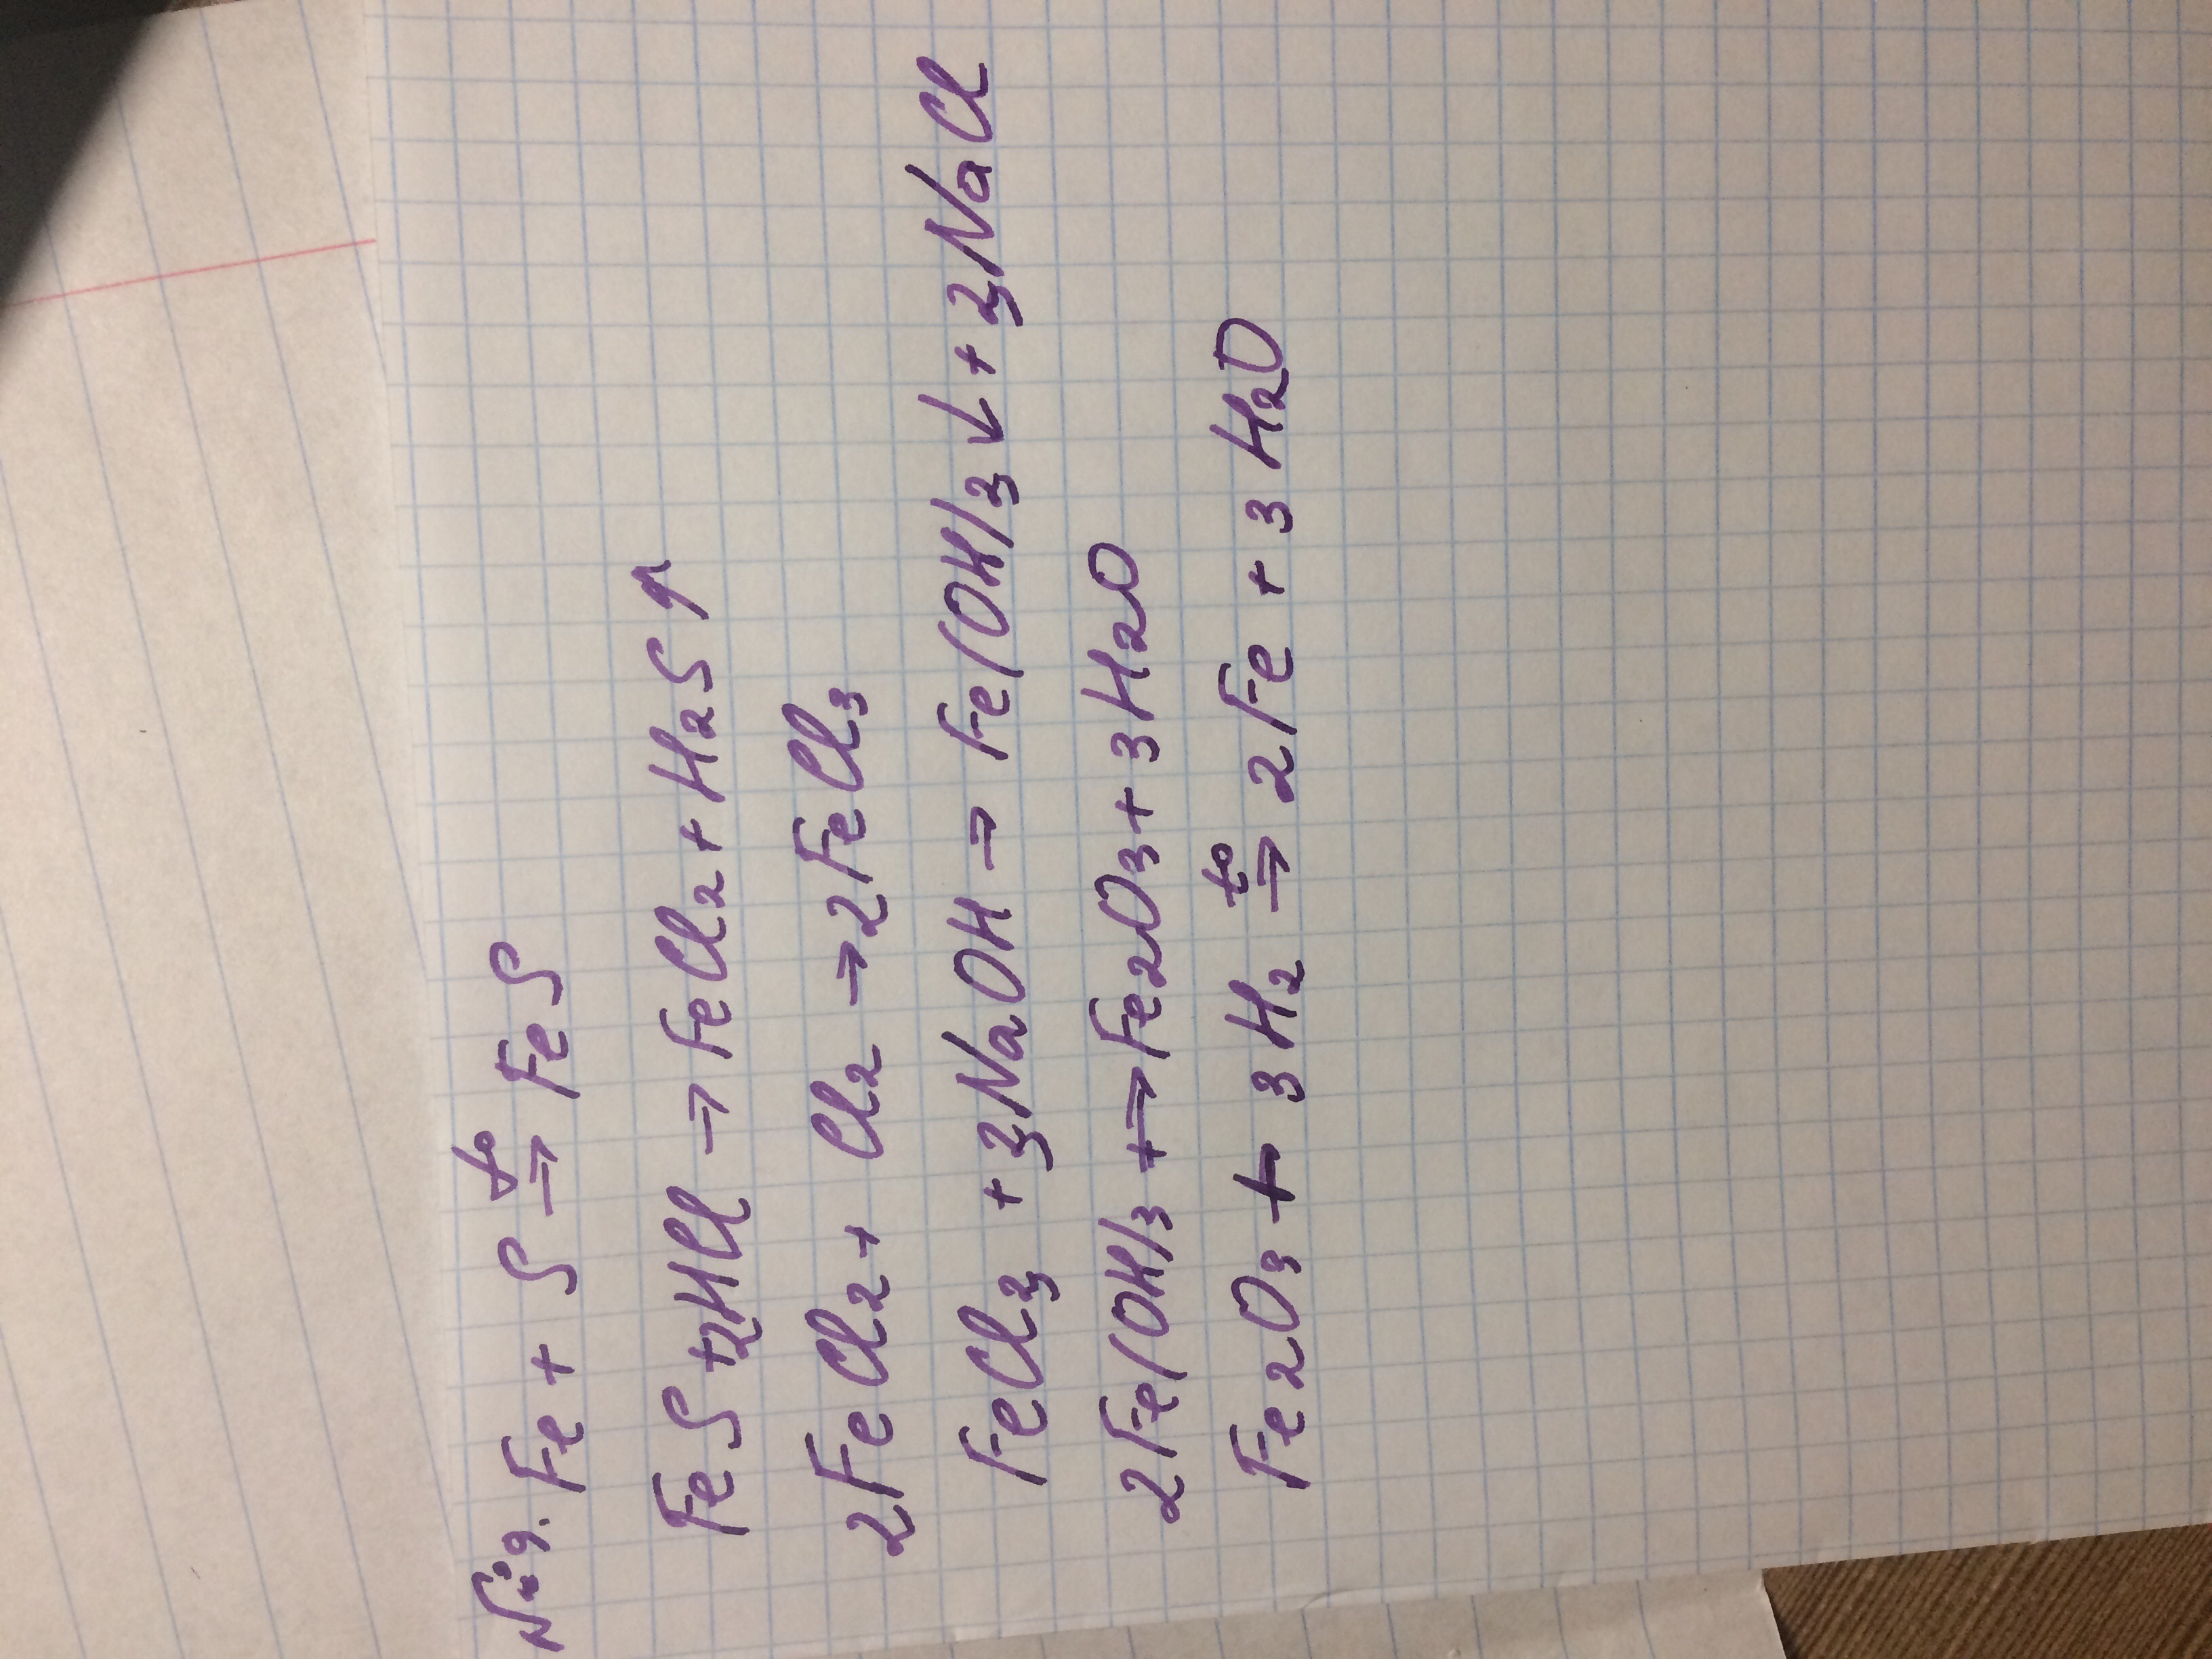 №9. Fe + S =t°> FeS
FeS + 2HCl → FeCl₂ + H₂S ↑
2FeCl₂ + Cl₂ → 2FeCl₃
FeCl₃ + 3NaOH → Fe(OH)₃↓ + 3NaCl
2Fe(OH)₃ → Fe₂O₃ + 3H₂O
Fe₂O₃ + 3H₂ =t°> 2Fe + 3H₂O